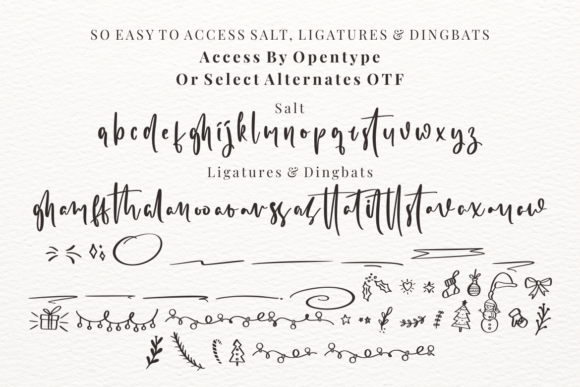 SO EASY TO ACCESS SALT, LIGATURES & DINGBATS
Access By Opentype
Or Select Alternates OTF
Salt
a b c d e f g h i j k l m n o p q r s t u v w x y z
Ligatures & Dingbats